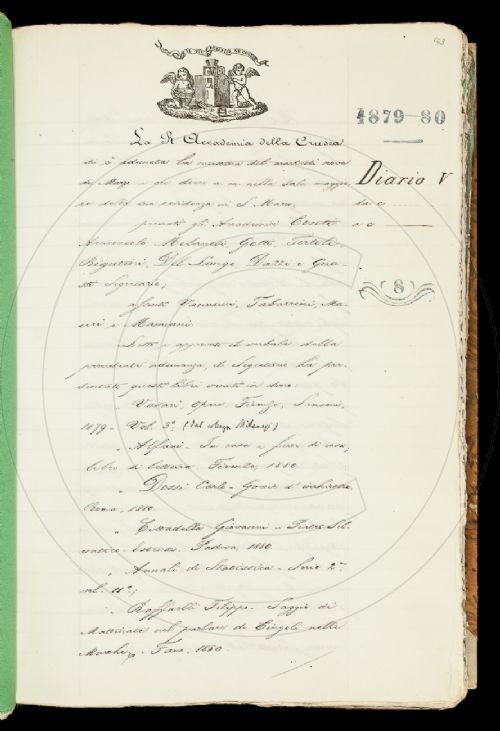 143
IL PIÙ BEL FIOR NE COGLIE
1879-80
La R. Accademia della Crusca
si è adunata la mattina del martedì nove
di Marzo a ore dieci a m. nella sala maggio
re della sua residenza in S. Marco,
Diario V
da c
a c
presenti gli Accademici Conti
Arciconsolo, Milanesi, Gotti, Tortoli,
Rigutini, Del Lungo, Dazzi e Gua
sti Segretario;
assenti Vannucci, Tabarrini, Mau
ri e Mamiani.
(8)
Letto e approvato il verbale della
precedente adunanza, il Segretario ha pre
sentato questi libri venuti in dono:
" Vasari, Opere. Firenze, Sansoni,
1879 - Vol. 3°. (dal Segr. Milanesi)
" Alfani - In casa e fuori di casa,
libro di lettura. Firenze, 1880.
" Dossi Carlo - Gocce d'inchiostro
Roma, 1880.
" Cittadella Giovanni - Pietro Sel
vatico. Padova, 1880.
" Annali di Statistica - Serie 2ª
vol. 11°;
" Raffaelli Filippo - Saggio di
nel parlare di Cingoli nelle
Marche - Fano, 1880